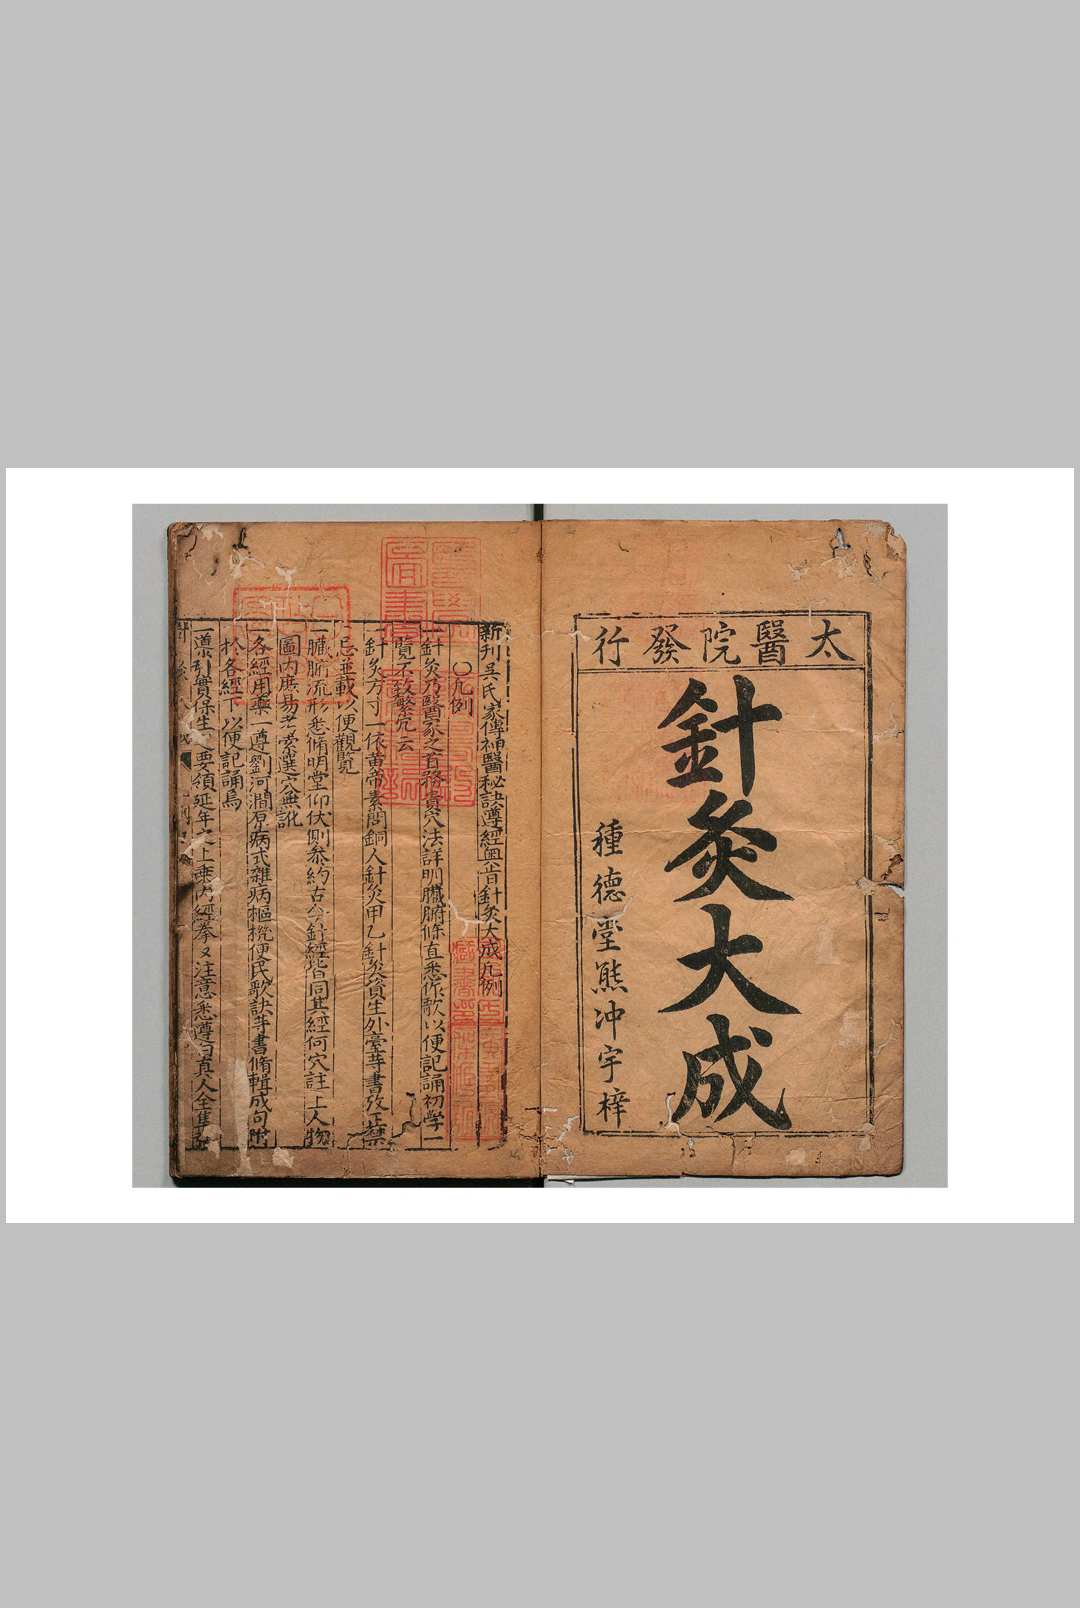 太醫院發行
針灸大成
種德堂熊冲宇梓
新刊吳氏家傳神醫秘訣遵經奧旨針灸大成凡例
〇凡例
一針灸乃醫家之首務貴穴法詳明臟腑條直悉作歌以便記誦初學一
覽不致繁冗云
一針灸方寸一依黄帝素問銅人針灸甲乙針灸資生外臺等書攷正禁
忌並載以便觀覽
一臟腑流形悉俻明堂仰伏側叅約古今針經皆同其經何穴註上人物
圖内庶易於選穴無訛
一各經用藥一遵劉河澗原病式雜病樞機便民歌訣等書脩輯成句附
於各經下以便記誦焉
一導引實保生之要領延年之上乘内經拳又注意悉遵白真人全集